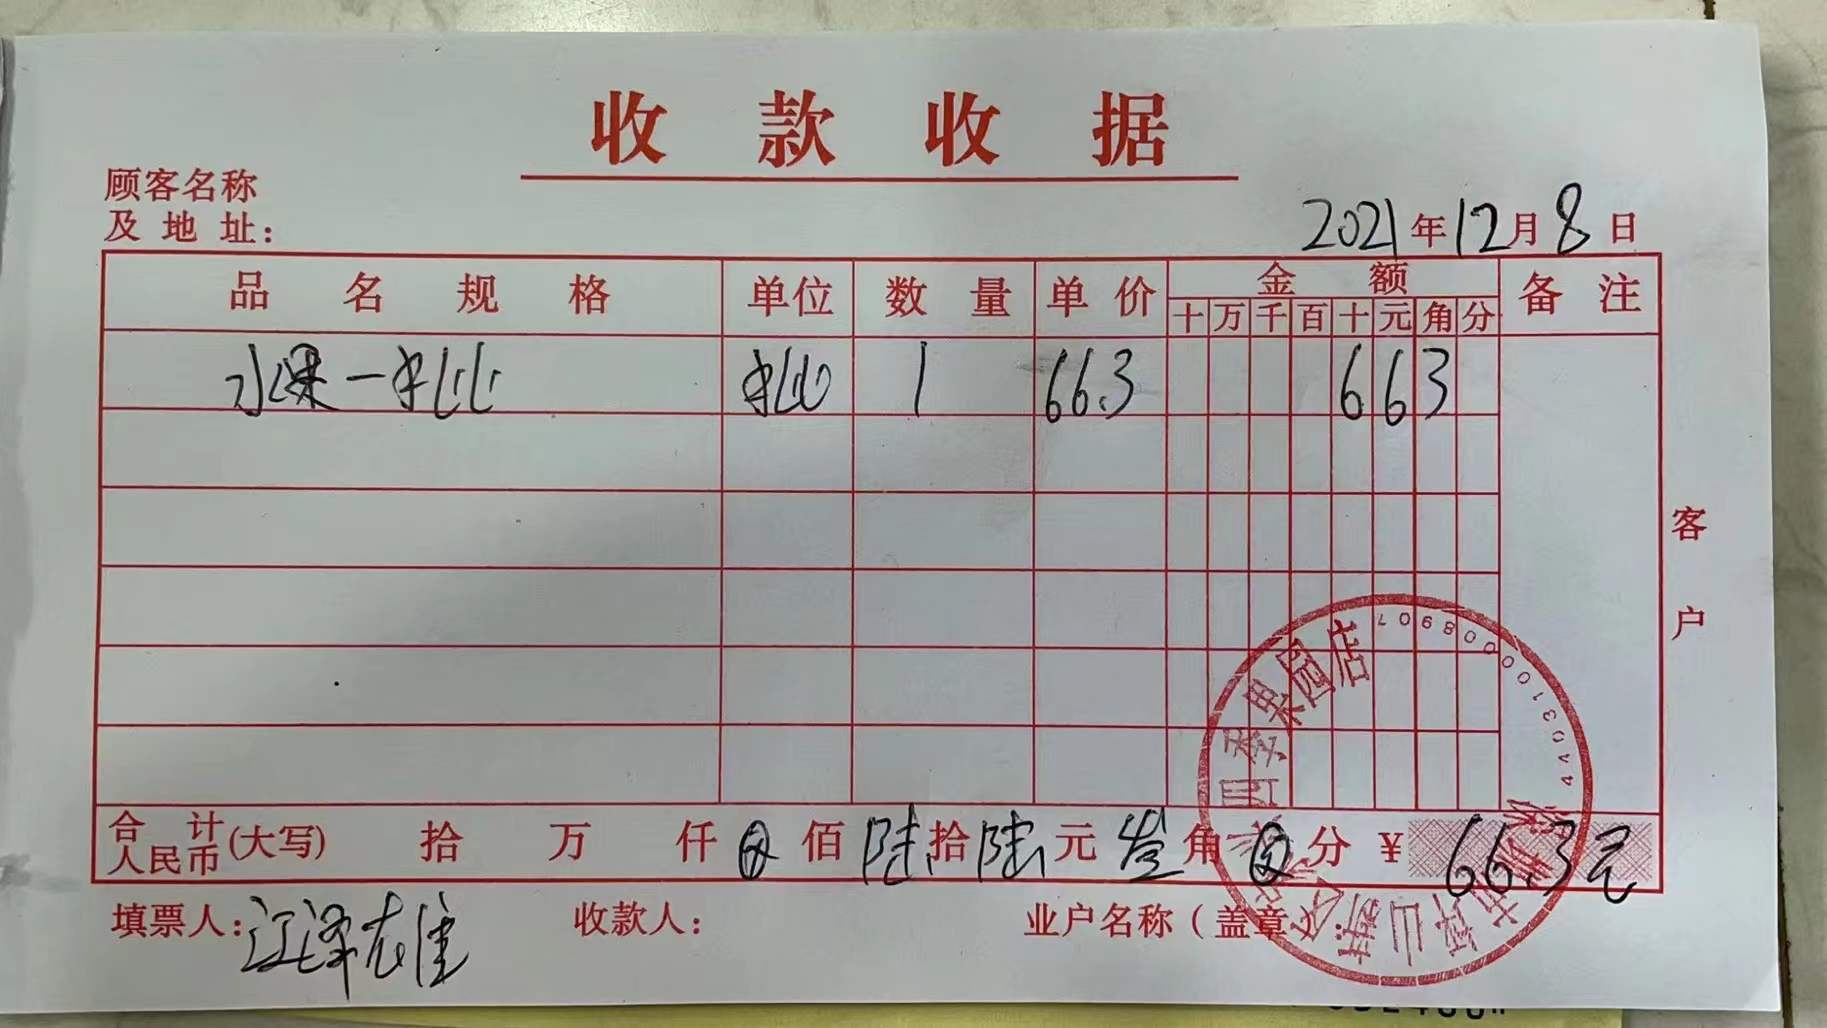 收款收据
顾客名称
及地址：
2021年12月8日
品名规格 单位 数量 单价 金额 备注
十万千百十元角分
水果一批 批 1 66.3 663
客户
合计
人民币(大写) 拾 万 仟 佰 陆拾陆元 角 分 ¥ 66.3元
填票人: 江泽雄 收款人: 业户名称（盖章）:
果园店
4403100008907